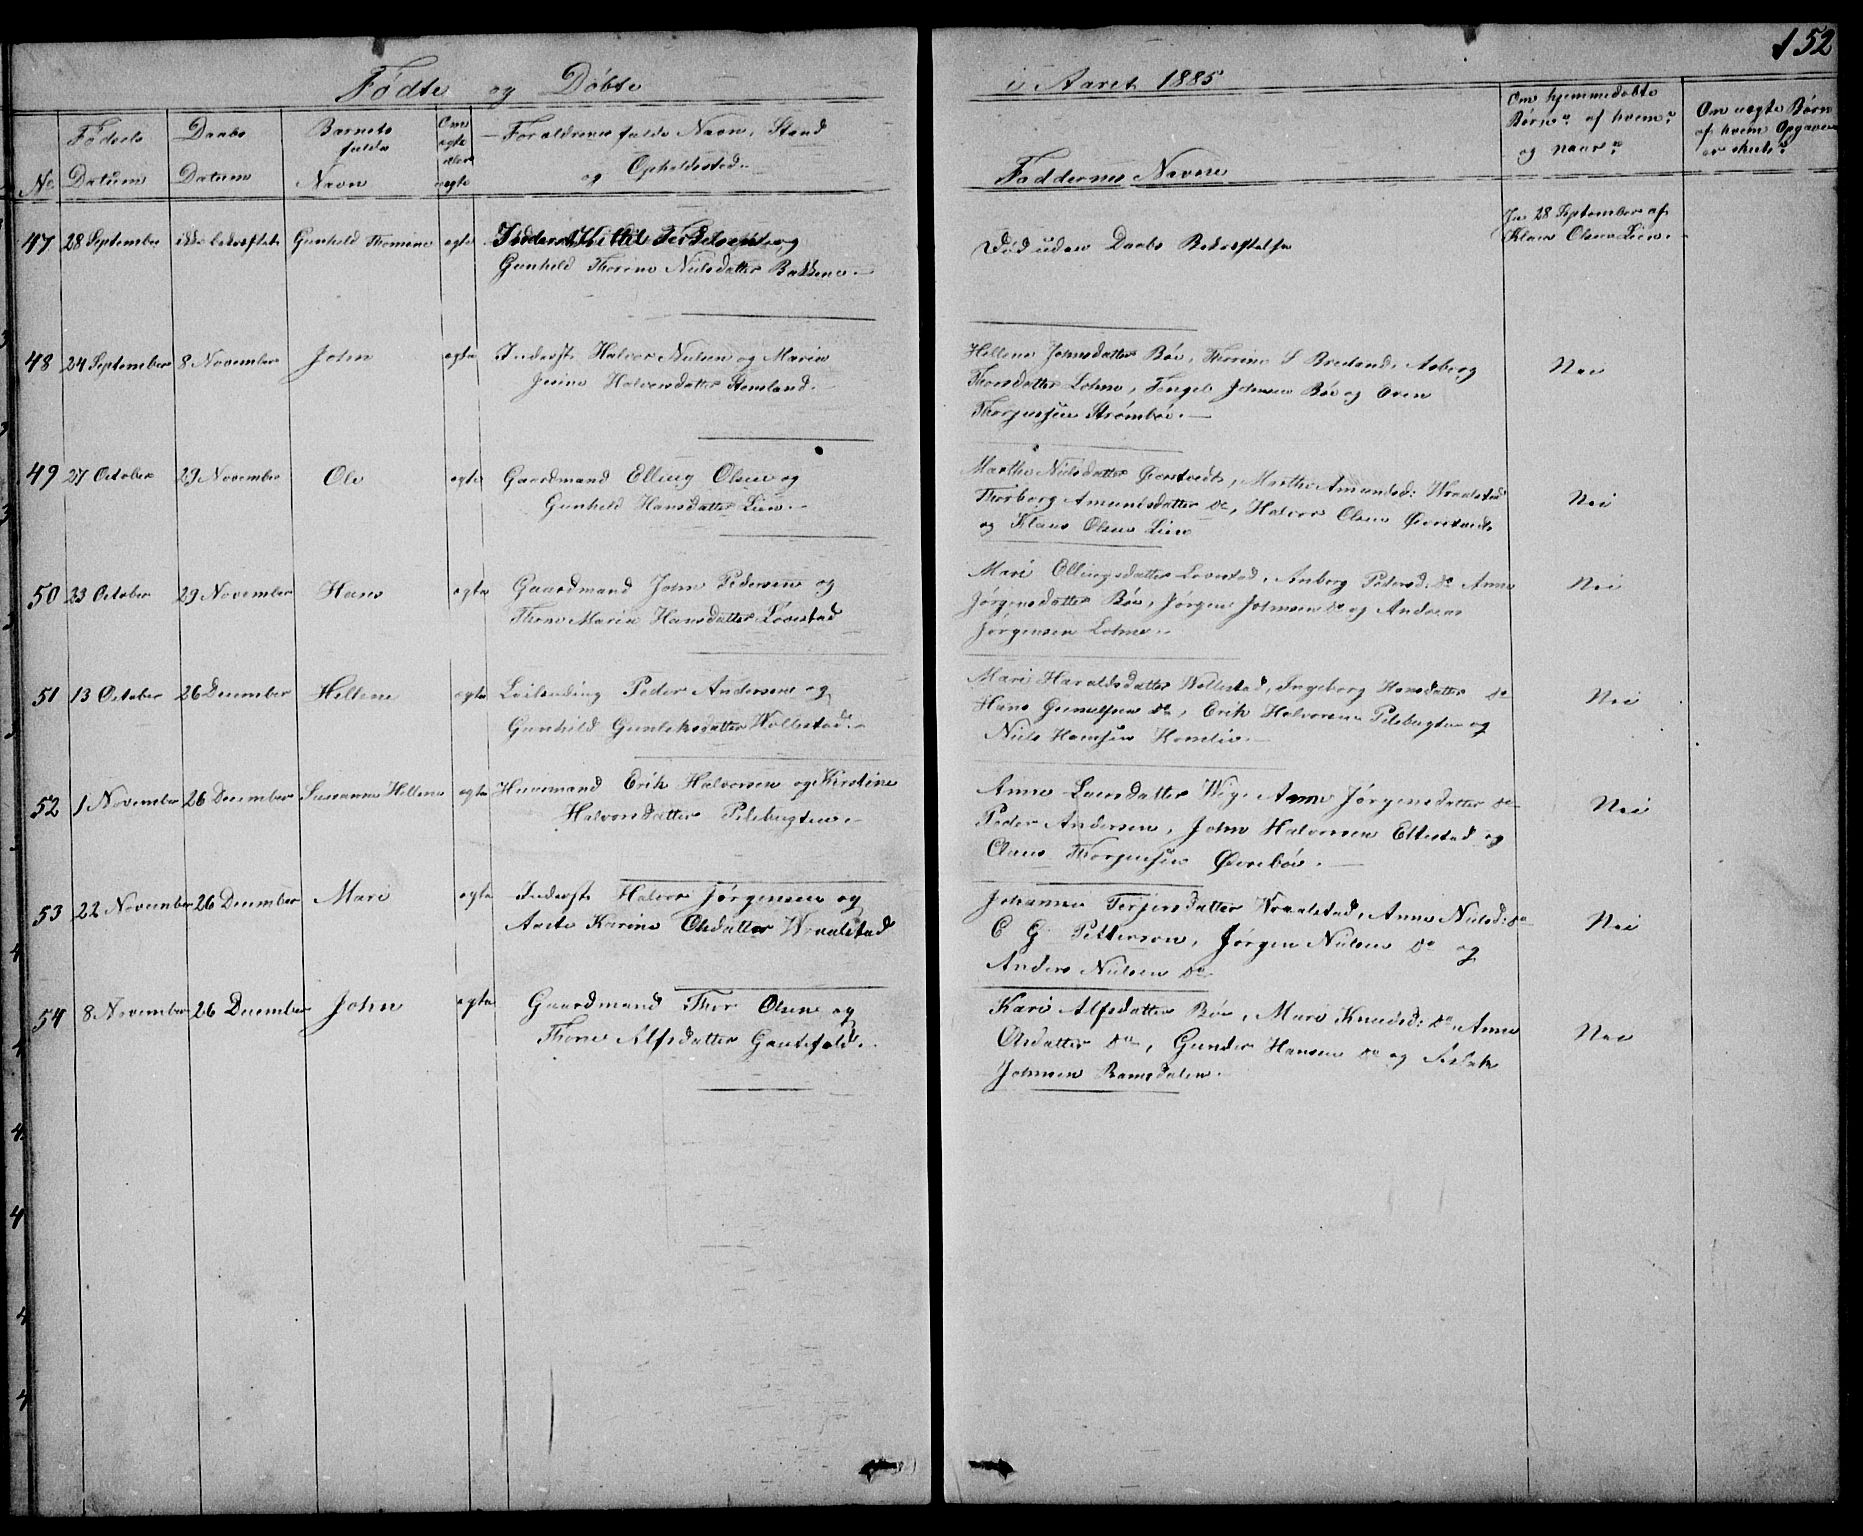 152
Fødte og Døbte i Aaret 1885
No Fødsels Datum Daabs Datum Barnets fulde Navn Om ægte eller uægte Forældrenes fulde Navn, Stand og Opholdssted. Faddernes Navne Om hjemmedøbte Børn: af hvem? og naar? Om uægte Børn af hvem Opgaven er skeet?
47 28 September ikke bekræftet Gunhild Thomine ægte Inderst Kittil Terkelsen og
Gunhild Thorine Nielsdatter Bakkene.
Død uden Daabs Bekræftelse
Ja 28 September af
Klaus Olsen Lien.
48 24 September 8 November John ægte Inderst Halvor Nielsen og Maria
Jesine Halvorsdatter Stemland.
Hellene Johnsdatter Bøe, Thorine S Bredsand, Asberg
Thorsdatter Lohne, Tengels Johnsen Bøe og Even
Thorjussen Strømboe.
Nei
49 27 October 29 November Ole ægte Gaardmand Elling Olsen og
Gunhild Hansdatter Lien.
Marthe Nielsdatter Øverstvedt, Marthe Amundsd: Wraalstad
Thorborg Amundsdatter do, Halvor Olsen Øverstvedt
og Klaus Olsen Lien
Nei
50 23 October 29 November Hans ægte Gaardmand John Pedersen og
Thone Maria Hansdatter Lovestad
Mari Ellingsdatter Lovestad, Anborg Pedersd. do Anne
Jørgensdatter Bøe, Jørgen Johnsen do og Andreas
Jørgensen Lohne.
Nei
51 13 October 26 December Hellene ægte Leilending Peder Andersen og
Gunhild Gunleksdatter Wollestad.
Mari Haraldsdatter Wollestad, Ingeborg Hansdatter do
Hans Gunulfsen do, Erik Halvorsen Pilebugten og
Niels Hansen Homlie.
Nei
52 1 November 26 December Susanne Hellene ægte Huusmand Erik Halvorsen og Kirstine
Halvorsdatter Pilebugten.
Anne Larsdatter Wige, Anne Jørgensdatter do
Peder Andersen, John Halvorsen Ettestad og
Claus Thorjussen Øvrebøe.
Nei
53 22 November 26 December Mari ægte Inderst Halvor Jørgensen og
Aaste Karine Olsdatter Wraalstad
Johanne Terjersdatter Wraalstad, Anne Nielsd: do
C G Petterson, Jørgen Nielsen do og
Anders Nielsen do
Nei
54 8 November 26 December John ægte Gaardmand Thor Olsen og
Thone Alfsdatter Gautefald.
Kari Alfsdatter Bøe, Mari Knudsd: do, Anne
Olsdatter do, Gunder Hansen do og Aslak
Johnsen Ramsdalen.
Nei